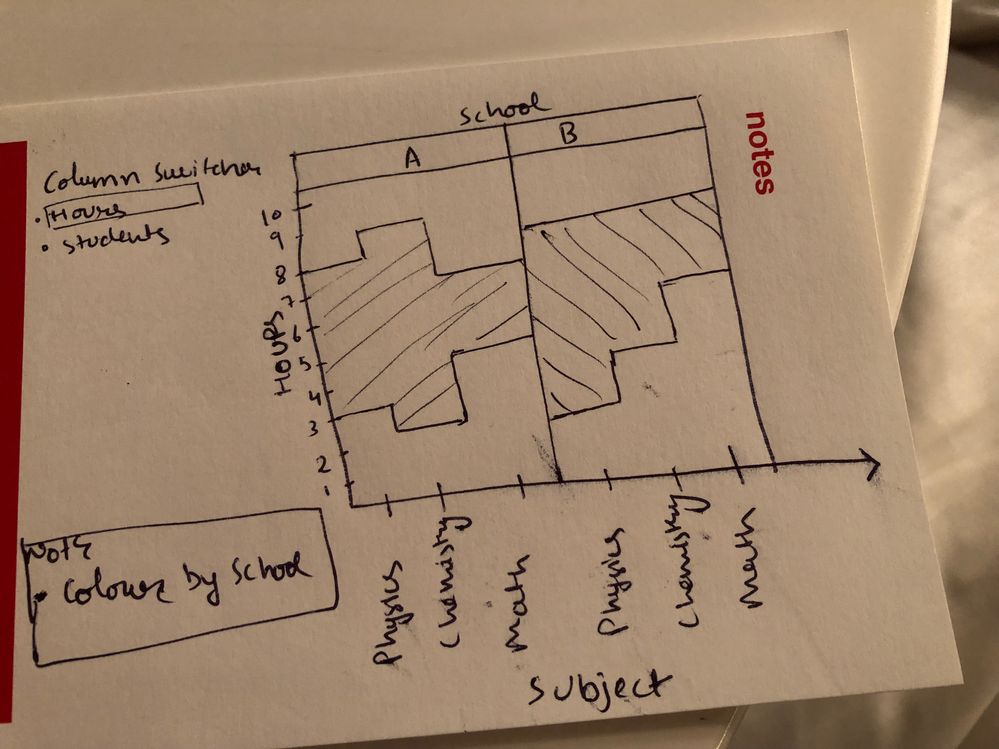 School
A B
Column Switcher
• Hours
• students
10
9
8
7
6
5
4
3
2
1
HOURS
Physics
Chemistry
Math
Physics
Chemistry
Math
Subject
Note
• Colour by School
notes